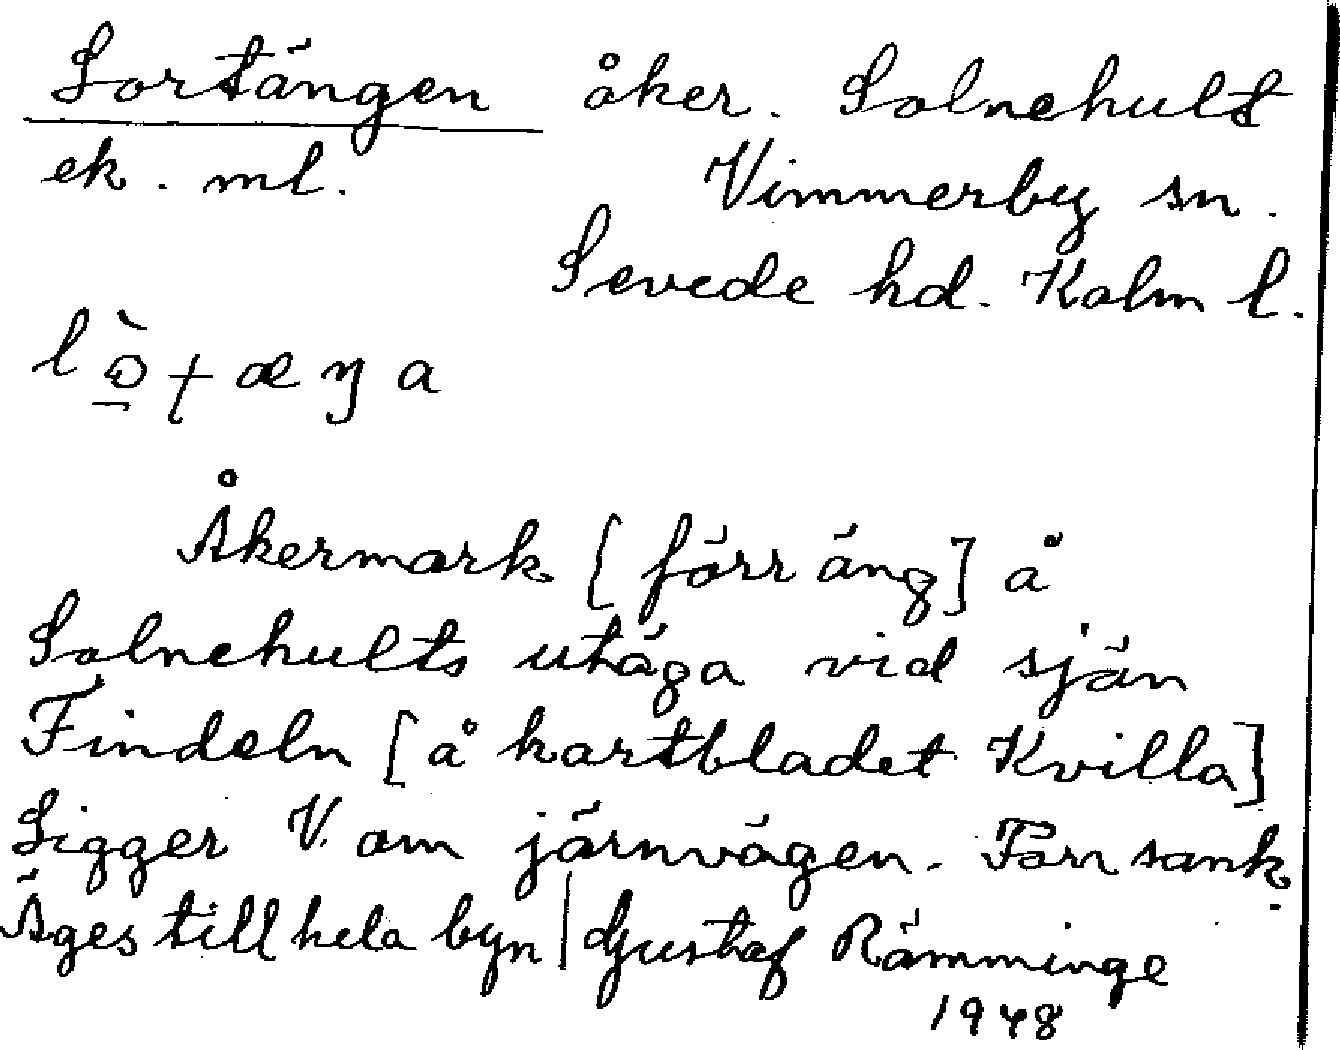 Lortängen åker. Solnehult
ek. ml. Vimmerby sn.
Sevede hd. Kalm l.
l æ ŋ a
Åkermark [förr äng] å
Solnehults utäga vid sjön
Findeln [å kartbladet Kvilla]
Ligger V. om järnvägen. Förr sank.
Äges till hela byn | Gustaf Rämminge
1948